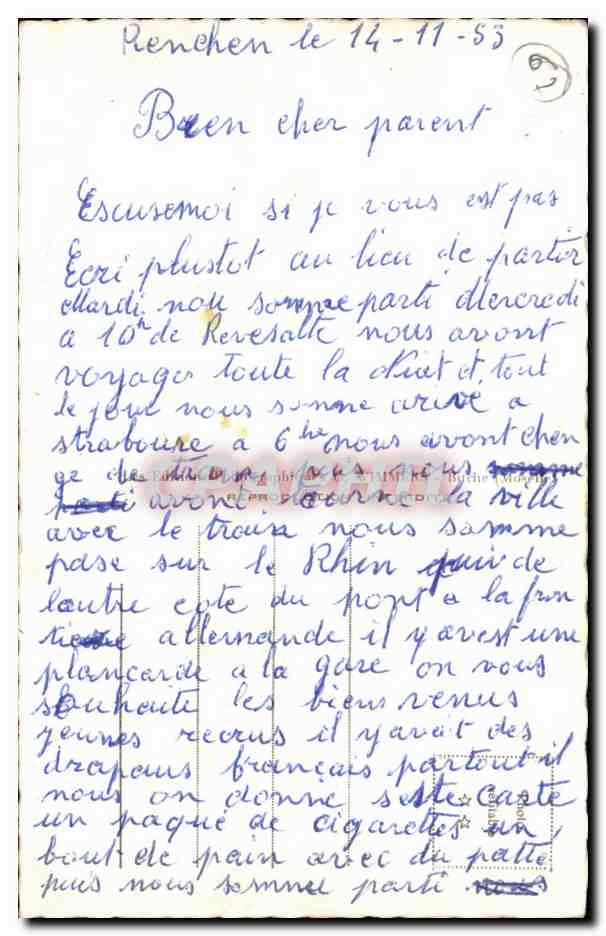 Renchen le 14-11-53
Bien cher parent
Escusemoi si je vous est pas
Ecri plustot au lieu de partir
Mardi nou somme parti Mercredi
a 10h de Revesalte nous avont
voyager toute la Nuet et tout
le jour nous somme arive a
straboure a 6h nous avont chen
ge de train puis nous
avont tourne la ville
avec le train nous somme
pase sur le Rhin puis de
lautre cote du pont a la fron
tiere allemande il y avest une
plancarde a la gare on vous
souhaite les biens venus
jeunes recrus il yavait des
drapaus français partout il
nous on donne sette carte
un paqué de cigarettes un
bout de pain avec du patté
puis nous somme parti